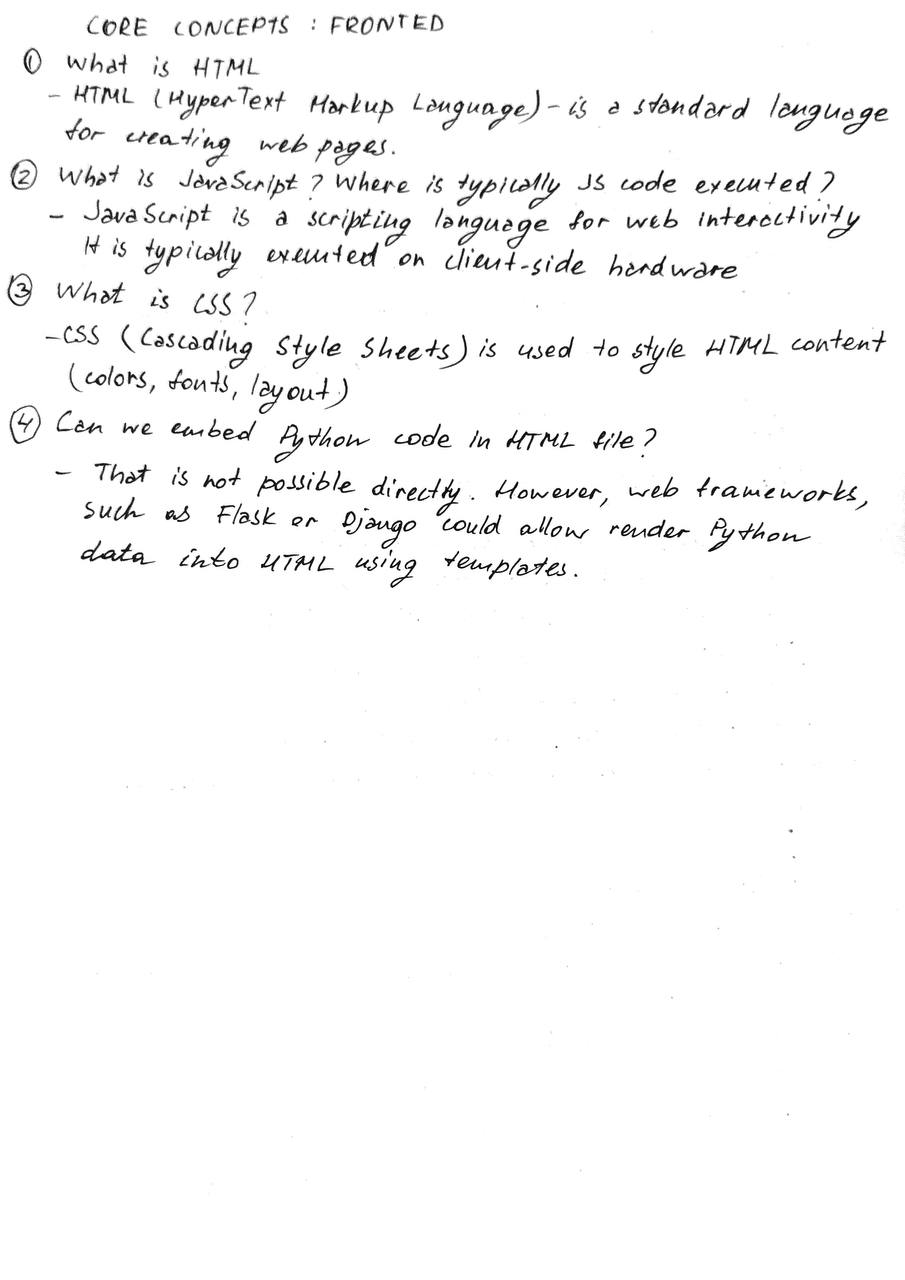 CORE CONCEPTS : FRONTED
① What is HTML
- HTML (HyperText Markup Language) - is a standard language
for creating web pages.
② What is JavaScript? Where is typically JS code executed?
- JavaScript is a scripting language for web interactivity
It is typically executed on client-side hardware
③ What is CSS?
- CSS (Cascading Style Sheets) is used to style HTML content
(colors, fonts, layout)
④ Can we embed Python code in HTML file?
- That is not possible directly. However, web frameworks,
such as Flask or Django could allow render Python
data into HTML using templates.